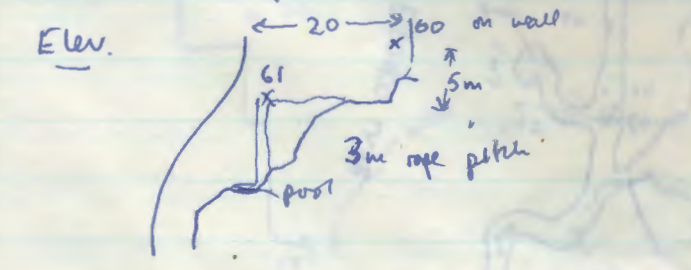 Elev.
← 20 → 60 on wall
61
5m
3m rope pitch
pool